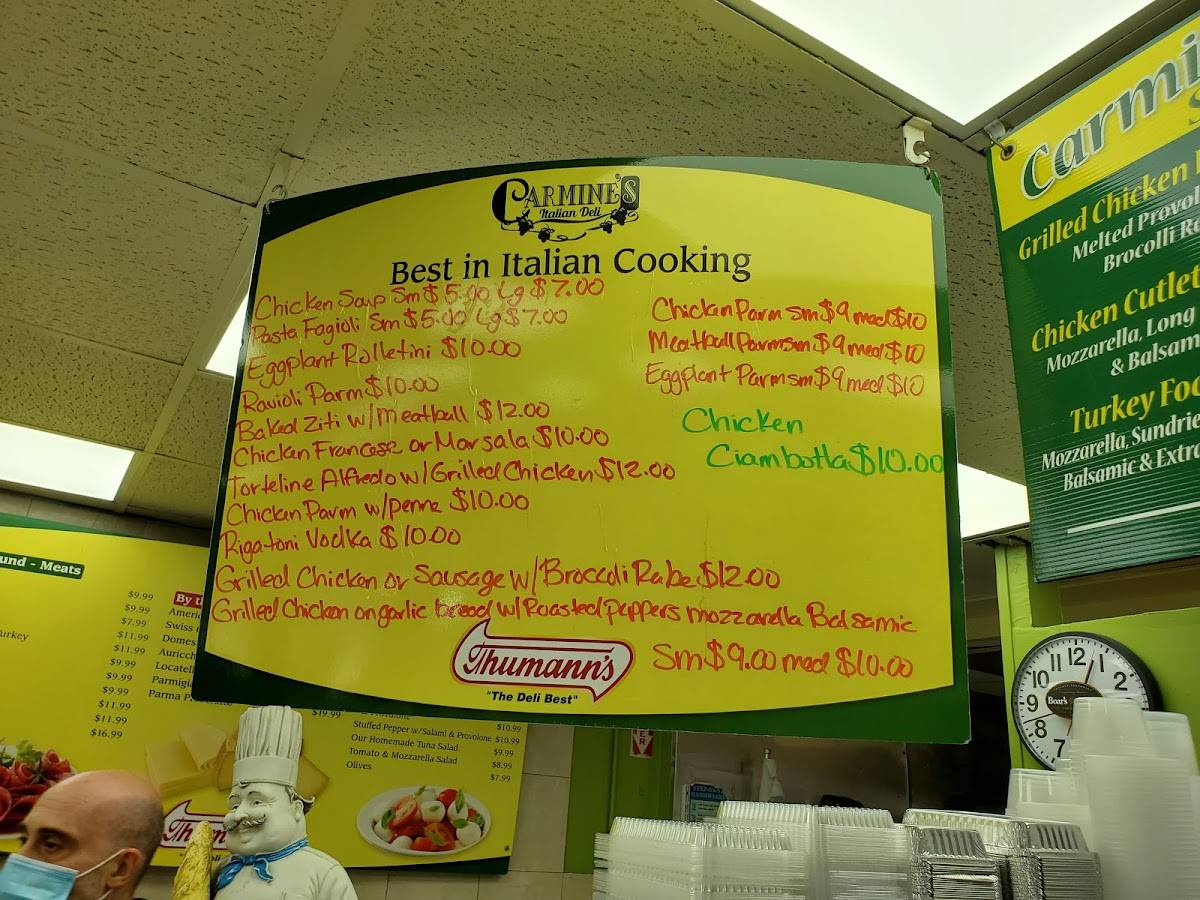 CARMINE'S
Italian Deli
Best in Italian Cooking
Chicken Soup Sm $5.00 Lg $7.00
Pasta Fagioli Sm $5.00 Lg $7.00
Eggplant Rolletini $10.00
Ravioli Parm $10.00
Baked Ziti w/Meatball $12.00
Chicken Francase or Marsala $10.00
Torteline Alfredo w/Grilled Chicken $12.00
Chicken Parm w/penne $10.00
Rigatoni Vodka $10.00
Grilled Chicken or Sausage w/Broccoli Rabe $12.00
Grilled Chicken on garlic bread w/Roasted peppers mozzarella Balsamic
Sm $9.00 med $10.00
Chicken Parm sm $9 med $10
Meatball Parm sm $9 med $10
Eggplant Parm sm $9 med $10
Chicken
Ciambotta $10.00
Thumann's
"The Deli Best"
Carmi
Grilled Chicken
Melted Provol
Brocolli R
Chicken Cutlet
Mozzarella, Long
& Balsam
Turkey Foc
Mozzarella, Sundrie
Balsamic & Extra
und - Meats
$9.99
$7.99
$11.99
$11.99
$9.99
$9.99
$9.99
$11.99
$11.99
$16.99
urkey
By
Ameri
Swiss
Domes
Auricch
Locatell
Parmigi
Parma P
$19.99
Stuffed Pepper w/Salami & Provolone $10.99
Our Homemade Tuna Salad $9.99
Tomato & Mozzarella Salad $8.99
Olives $7.99
$10.99
Thum
11 12 1
10 2
9
8
7
Boar's